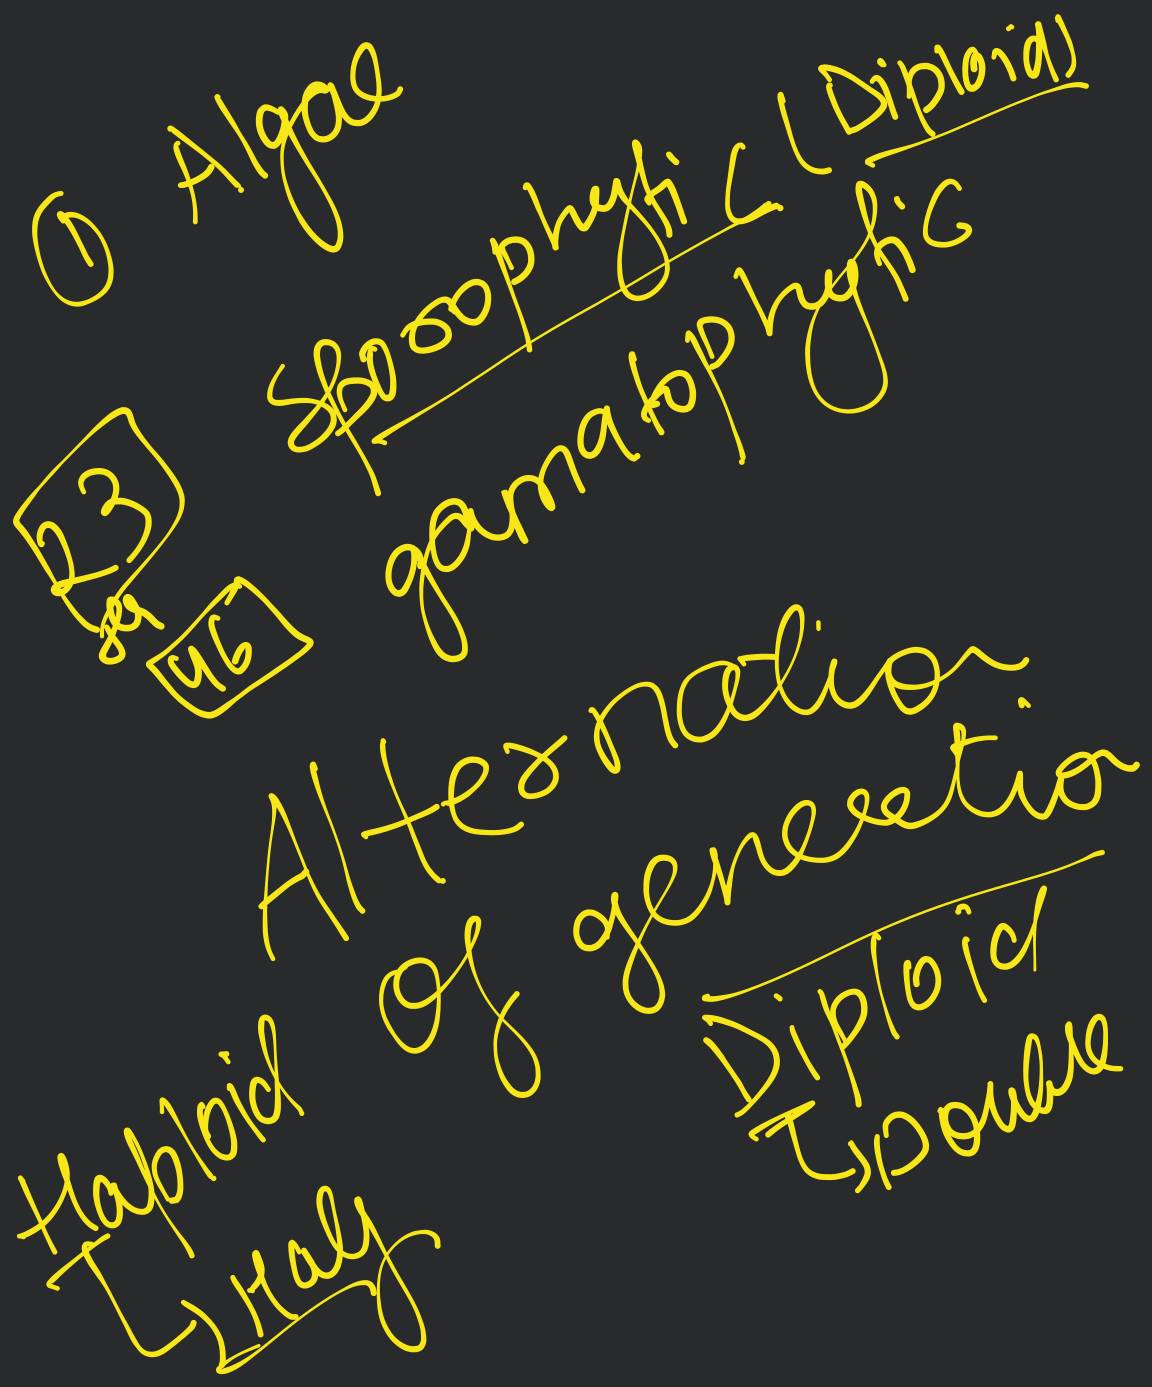 ① Algae
Sporophytic (Diploid)
gamatophytic
23
46
Alternation
of geneetion
Diploid
↳ Double
Haploid
↳ Half